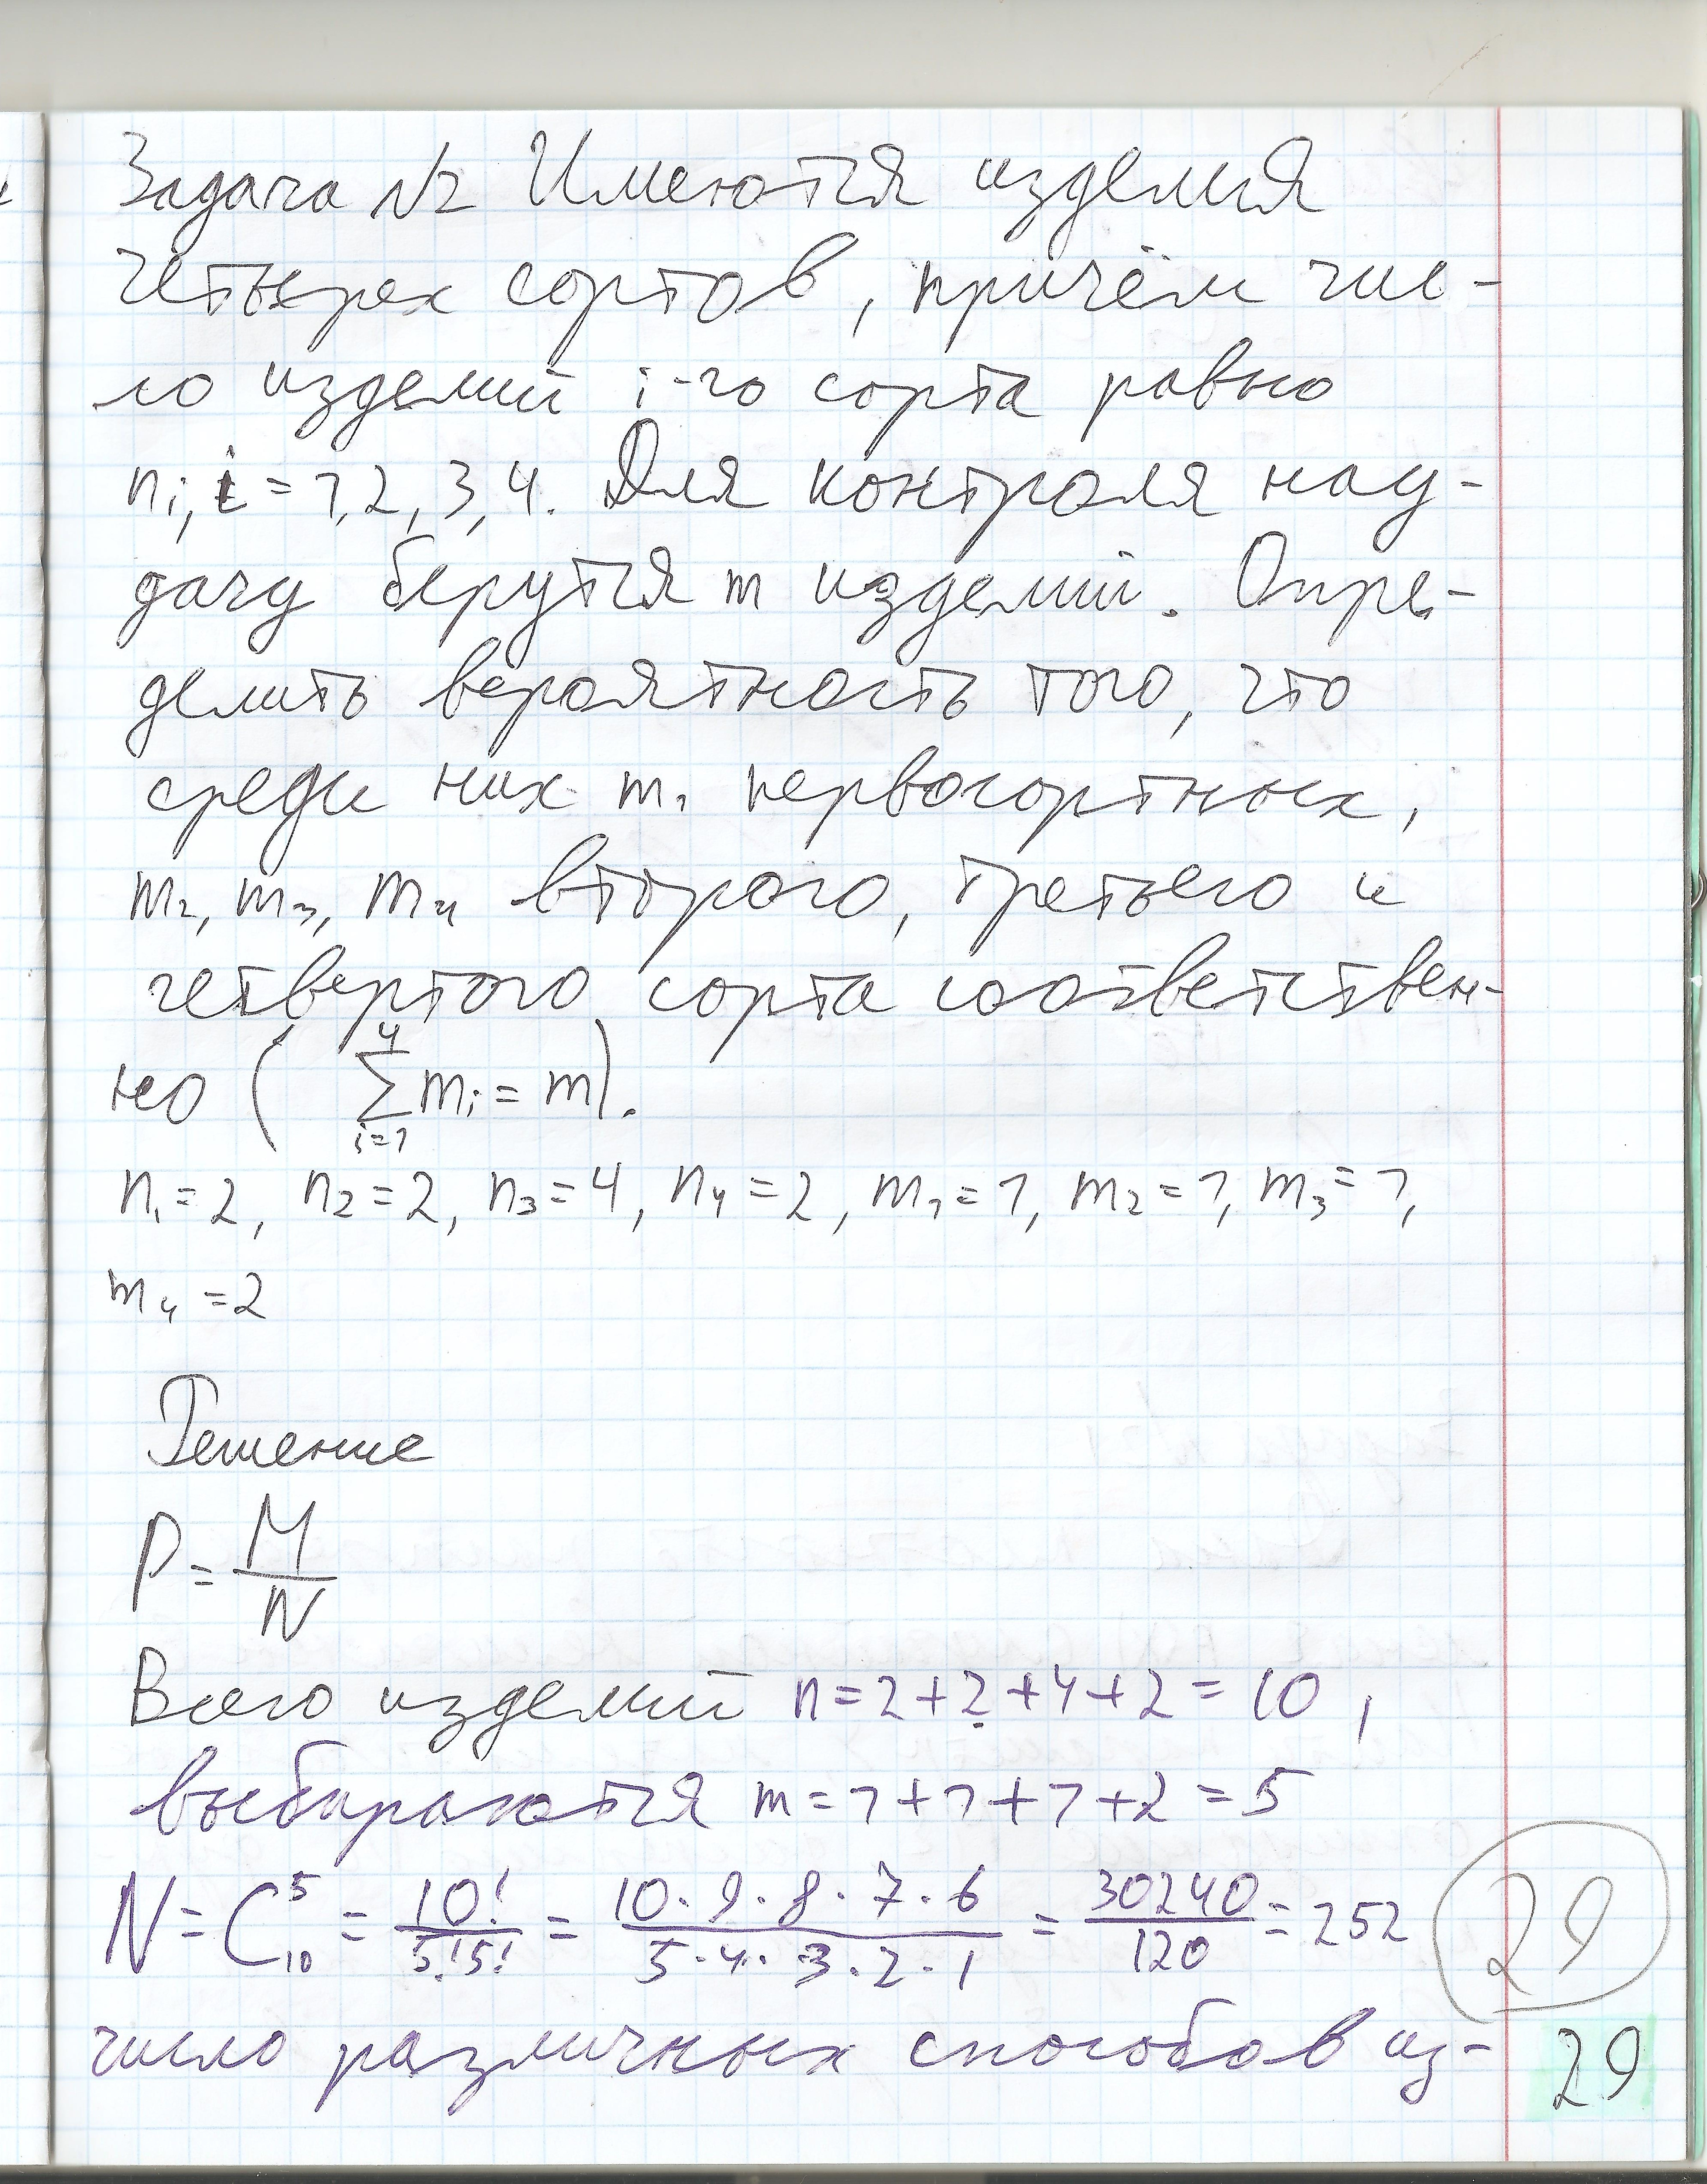 Задача №2 Имеются изделия
четырех сортов, причём чис-
ло изделий i-го сорта равно
n_i, i = 1, 2, 3, 4. Для контроля нау-
дачу берутся m изделий. Опре-
делить вероятность того, что
среди них m_1 первосортных,
m_2, m_3, m_4 второго, третьего и
четвертого сорта соответствен-
но ( \sum_{i=1}^{4} m_i = m ).
n_1 = 2, n_2 = 2, n_3 = 4, n_4 = 2, m_1 = 1, m_2 = 1, m_3 = 1,
m_4 = 2
Решение
P = \frac{M}{N}
Всего изделий n = 2 + 2 + 4 + 2 = 10,
выбираются m = 1 + 1 + 1 + 2 = 5
N = C_{10}^{5} = \frac{10!}{5!5!} = \frac{10 \cdot 9 \cdot 8 \cdot 7 \cdot 6}{5 \cdot 4 \cdot 3 \cdot 2 \cdot 1} = \frac{30240}{120} = 252
29
число различных способов из-
29